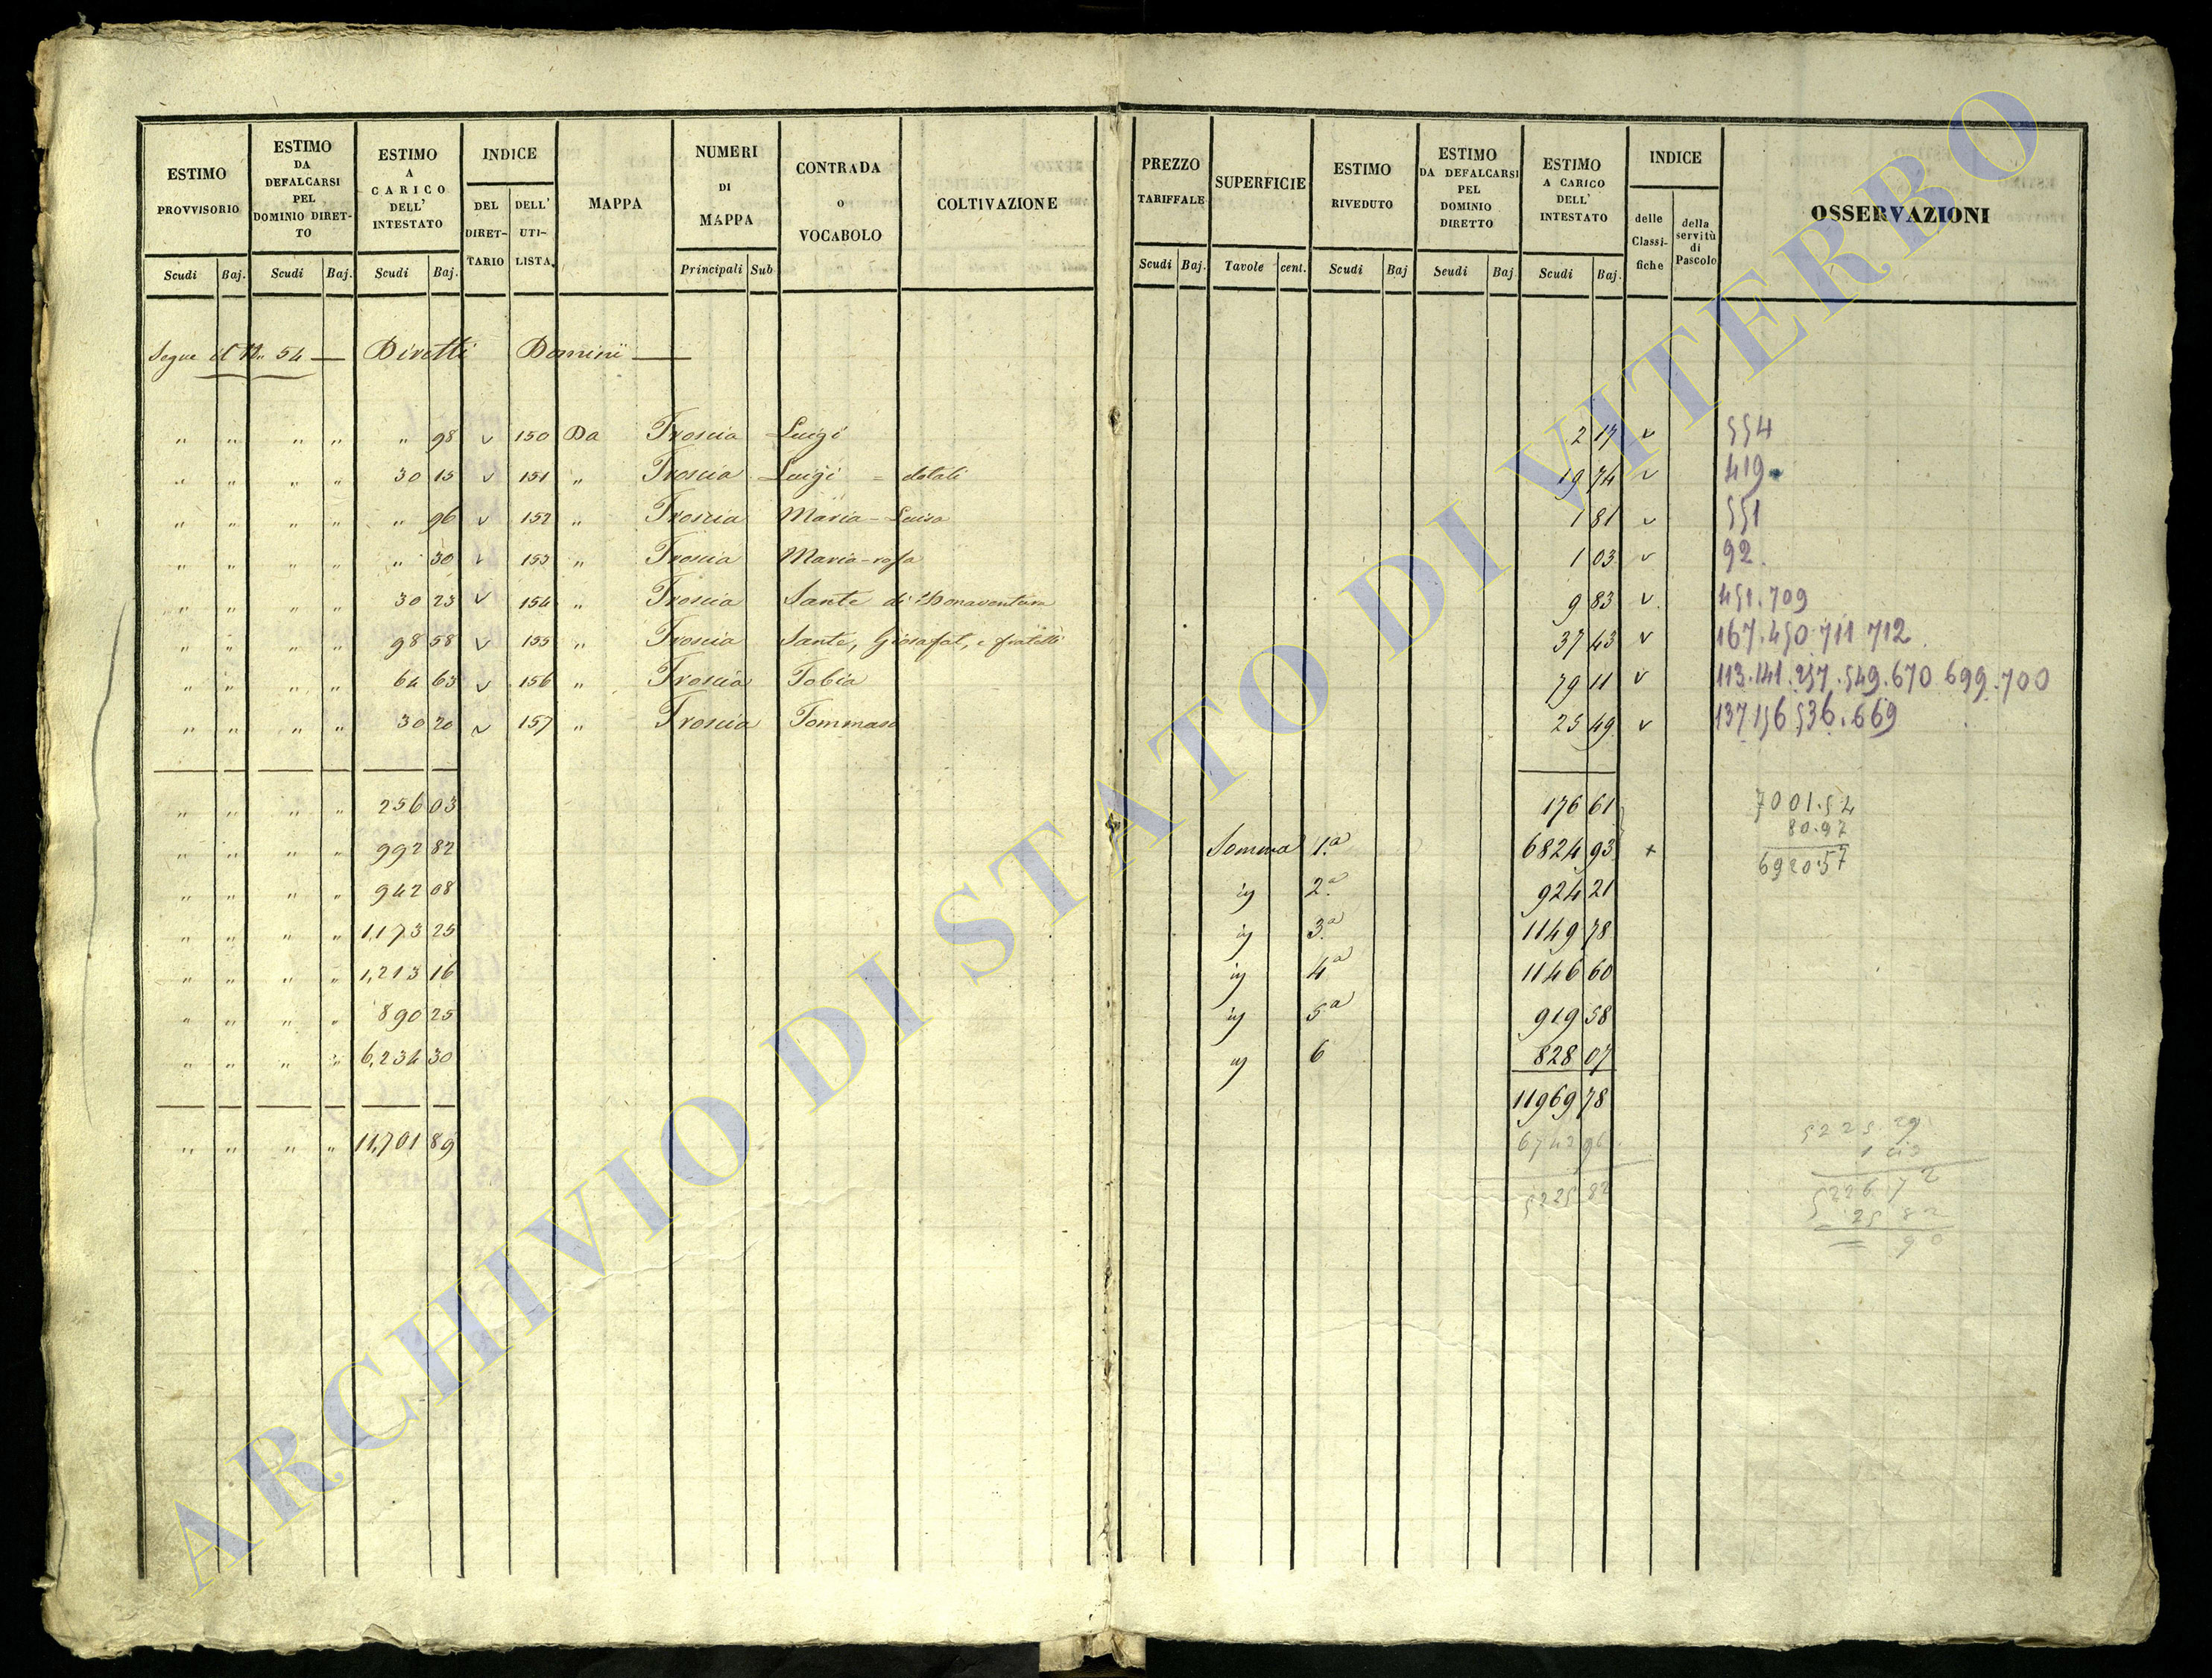 ESTIMO PROVVISORIO
ESTIMO DA DEFALCARSI PEL DOMINIO DIRET-TO
ESTIMO A CARICO DELL' INTESTATO
INDICE
DEL DIRET-TARIO
DELL' UTI-LISTA
MAPPA
NUMERI DI MAPPA
CONTRADA O VOCABOLO
COLTIVAZIONE
Scudi Baj. Scudi Baj. Scudi Baj. Principali Sub
PREZZO TARIFFALE
SUPERFICIE
ESTIMO RIVEDUTO
ESTIMO DA DEFALCARSI PEL DOMINIO DIRETTO
ESTIMO A CARICO DELL' INTESTATO
INDICE
delle Classi-fiche
della servitù di Pascolo
OSSERVAZIONI
Scudi Baj. Tavole cent. Scudi Baj Scudi Baj Scudi Baj.
Segue il N. 54 — Diretti Dominii —
" " " " " 98 v 150 Da Froscia Luigi 2 17 v 554
" " " " 30 15 v 151 " Froscia Luigi = dotali 19 74 v 419
" " " " " 96 v 152 " Froscia Maria-Luisa 1 81 v 551
" " " " " 30 v 153 " Froscia Maria-rosa 1 03 v 92.
" " " " 30 23 v 154 " Froscia Sante di Bonaventura 9 83 v 451.709
" " " " 98 58 v 155 " Froscia Sante, Giosafat, e fratelli 37 43 v 167.450.711 712
" " " " 64 63 v 156 " Froscia Tobia 79 11 v 113.141.257.549.670 699.700
" " " " 30 20 v 157 " Froscia Tommaso 25 49 v 137.156 536.669
" " " " 256 03 176 61 7001.54
" " " " 992 82 Somma 1.a 6824 93 + 80.97
6920.57
" " " " 942 08 id 2.a 924 21
" " " " 1,173 25 id 3.a 1149 78
" " " " 1,213 16 id 4a 1146 60
" " " " 890 25 id 5a 919 58
" " " " 6,234 30 id 6 828 07
11969 78
" " " " 11,701 89 6743 96 5225.29
5225 82 5226 72
25 82
90
ARCHIVIO DI STATO DI VITERBO